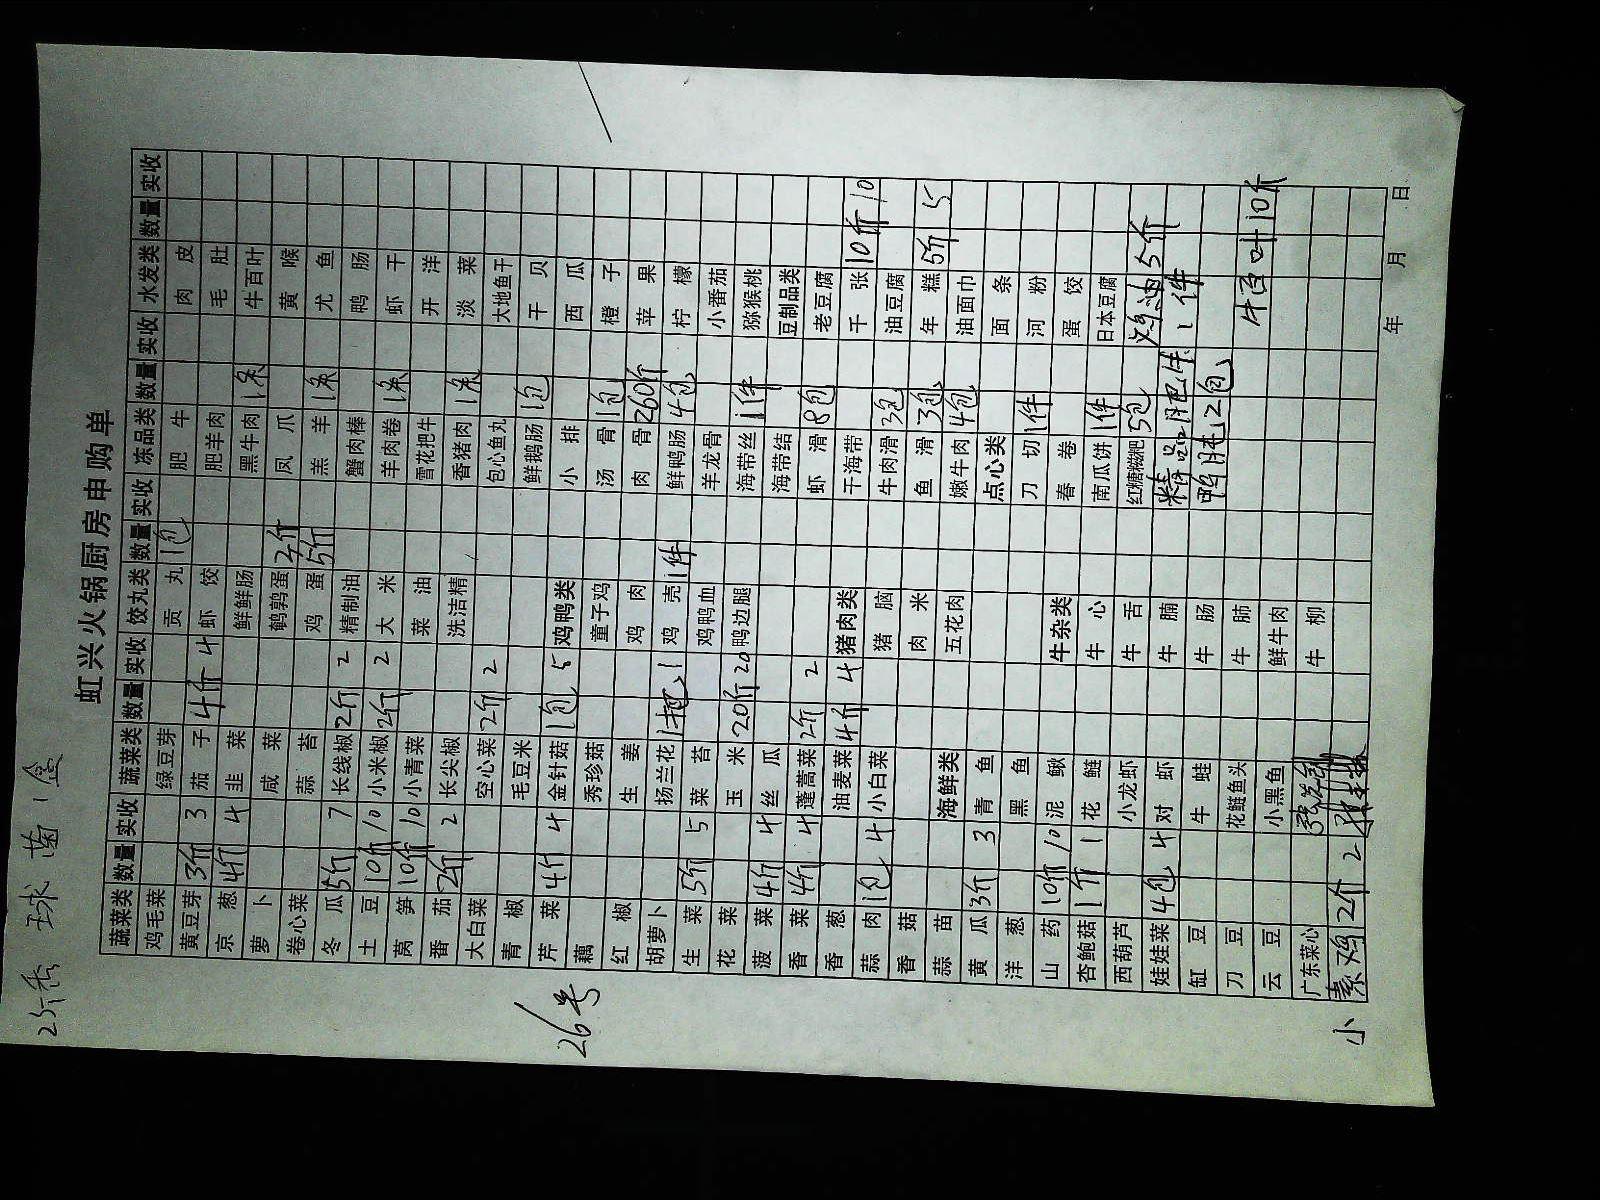 2斤香 球菌1盒
虹兴火锅厨房申购单
蔬菜类 数量 实收 蔬菜类 数量 实收 饺丸类 数量 实收 冻品类 数量 实收 水发类 数量 实收
鸡毛菜 绿豆芽 贡丸 1包 肥牛 肉皮
黄豆芽 3斤 3 茄子 4斤 4 虾饺 肥羊肉 毛肚
京葱 4斤 4 韭菜 鲜鲜肠 黑牛肉 1条 牛百叶
萝卜 咸菜 鹌鹑蛋 2斤 凤爪 黄喉
卷心菜 蒜苔 鸡蛋 5斤 羔羊 1条 尤鱼
冬瓜 5斤 7 长线椒 2斤 2 精制油 蟹肉棒 鸭肠
土豆 10斤 10 小米椒 2斤 2 大米 羊肉卷 1条 虾干
莴笋 10斤 10 小青菜 菜油 雪花把牛 开洋
番茄 2斤 2 长尖椒 洗洁精 香猪肉 1条 淡菜
大白菜 空心菜 2斤 2 包心鱼丸 大地鱼干
青椒 毛豆米 鲜鹅肠 1包 干贝
芹菜 4斤 4 金针菇 1包 5 鸡鸭类 小排 西瓜
藕 秀珍菇 童子鸡 汤骨 1包 橙子
红椒 生姜 鸡肉 肉骨 260斤 苹果
胡萝卜 扬兰花 1把 1 鸡壳 1件 鲜鸭肠 4包 柠檬
生菜 5斤 5 菜苔 鸡鸭血 羊龙骨 小番茄
花菜 玉米 20斤 20 鸭边腿 海带丝 1件 猕猴桃
菠菜 4斤 4 丝瓜 海带结 豆制品类
香菜 4斤 4 蓬蒿菜 2斤 2 虾滑 8包 老豆腐
香葱 油麦菜 4斤 4 猪肉类 干海带 千张 10斤 10
蒜肉 1包 4 小白菜 猪脑 牛肉滑 3包 油豆腐
香菇 肉米 鱼滑 3包 年糕 5斤 5
蒜苗 海鲜类 五花肉 嫩牛肉 4包 油面巾
黄瓜 3斤 3 青鱼 点心类 面条
洋葱 黑鱼 刀切 1件 河粉
山药 10斤 10 泥鳅 牛杂类 春卷 蛋饺
杏鲍菇 1斤 1 花鲢 牛心 南瓜饼 1件 日本豆腐
西葫芦 小龙虾 牛舌 红糖糍粑 5包 鸡油 5斤
娃娃菜 4包 4 对虾 牛腩 精品肥牛 1件
缸豆 牛蛙 牛肠 鸭肫 2包
刀豆 花鲢鱼头 牛肺 牛百叶 10斤
云豆 小黑鱼 鲜牛肉
广东菜心 牛柳
小素鸡 2斤 2
年 月 日
26号